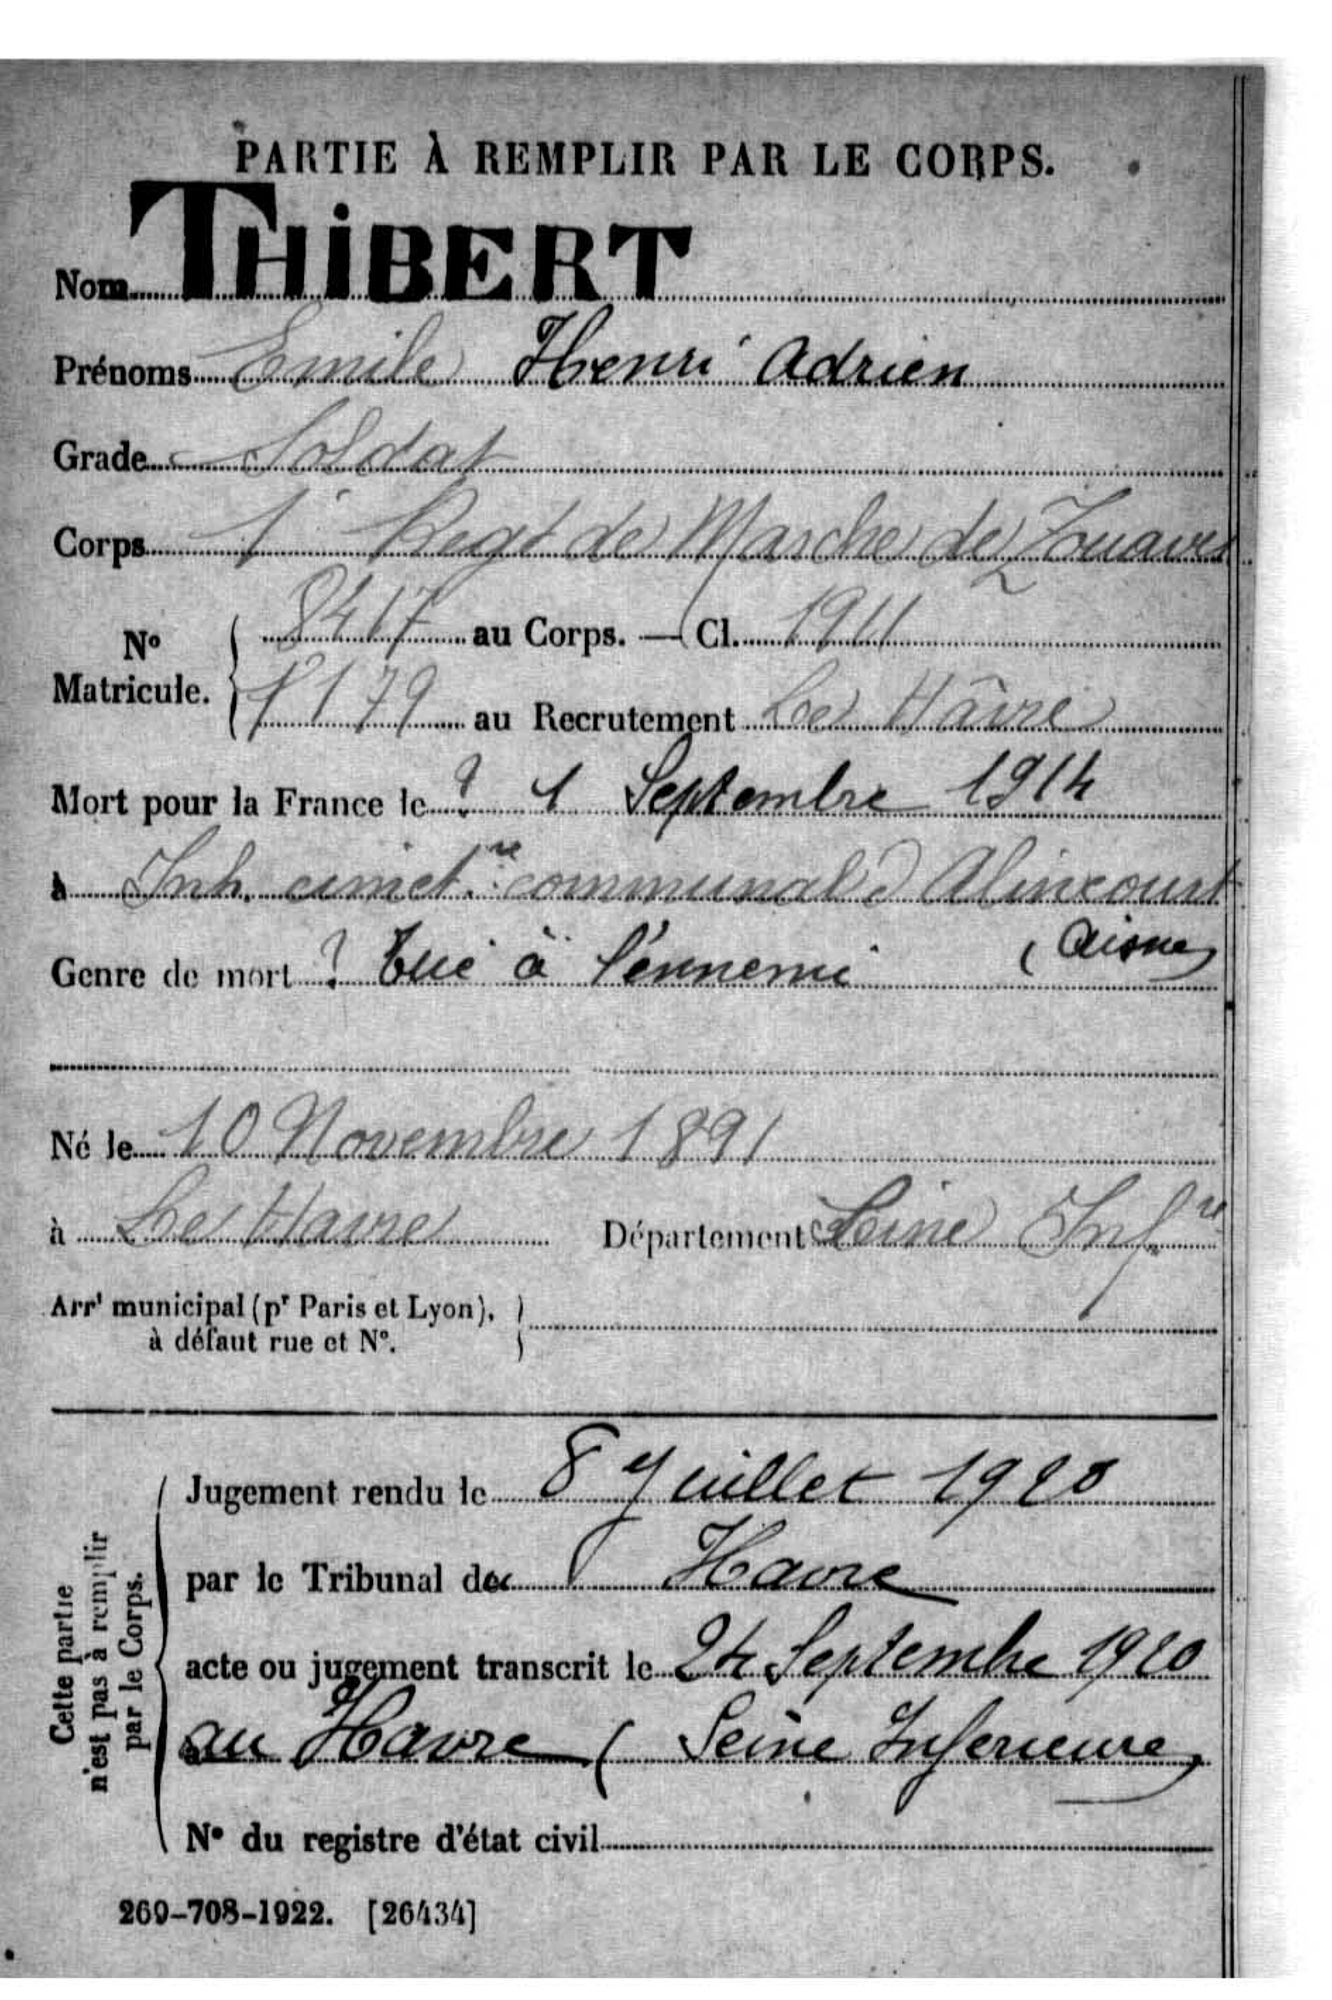 PARTIE À REMPLIR PAR LE CORPS.
Nom THIBERT
Prénoms Emile Henri Adrien
Grade Soldat
Corps 1er Regt de Marche de Zouaves
No Matricule. 8417 au Corps. — Cl. 1911
1179 au Recrutement Le Hâvre
Mort pour la France le ? 1 Septembre 1914
à Inh. cimetre communal d'Alincourt
(Aisne)
Genre de mort ? Tué à l'ennemi
Né le 10 Novembre 1891
à Le Havre Département Seine Infre
Arrt municipal (pr Paris et Lyon),
à défaut rue et No.
Cette partie n'est pas à remplir par le Corps.
Jugement rendu le 8 Juillet 1920
par le Tribunal du Havre
acte ou jugement transcrit le 24 Septembre 1920
au Havre (Seine Inferieure)
No du registre d'état civil
269-708-1922. [26434]